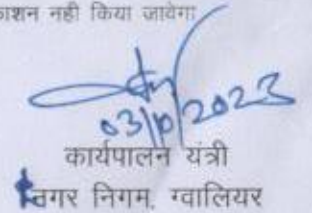 काशन नही किया जावेगा
03/10/2023
कार्यपालन यंत्री
नगर निगम, ग्वालियर